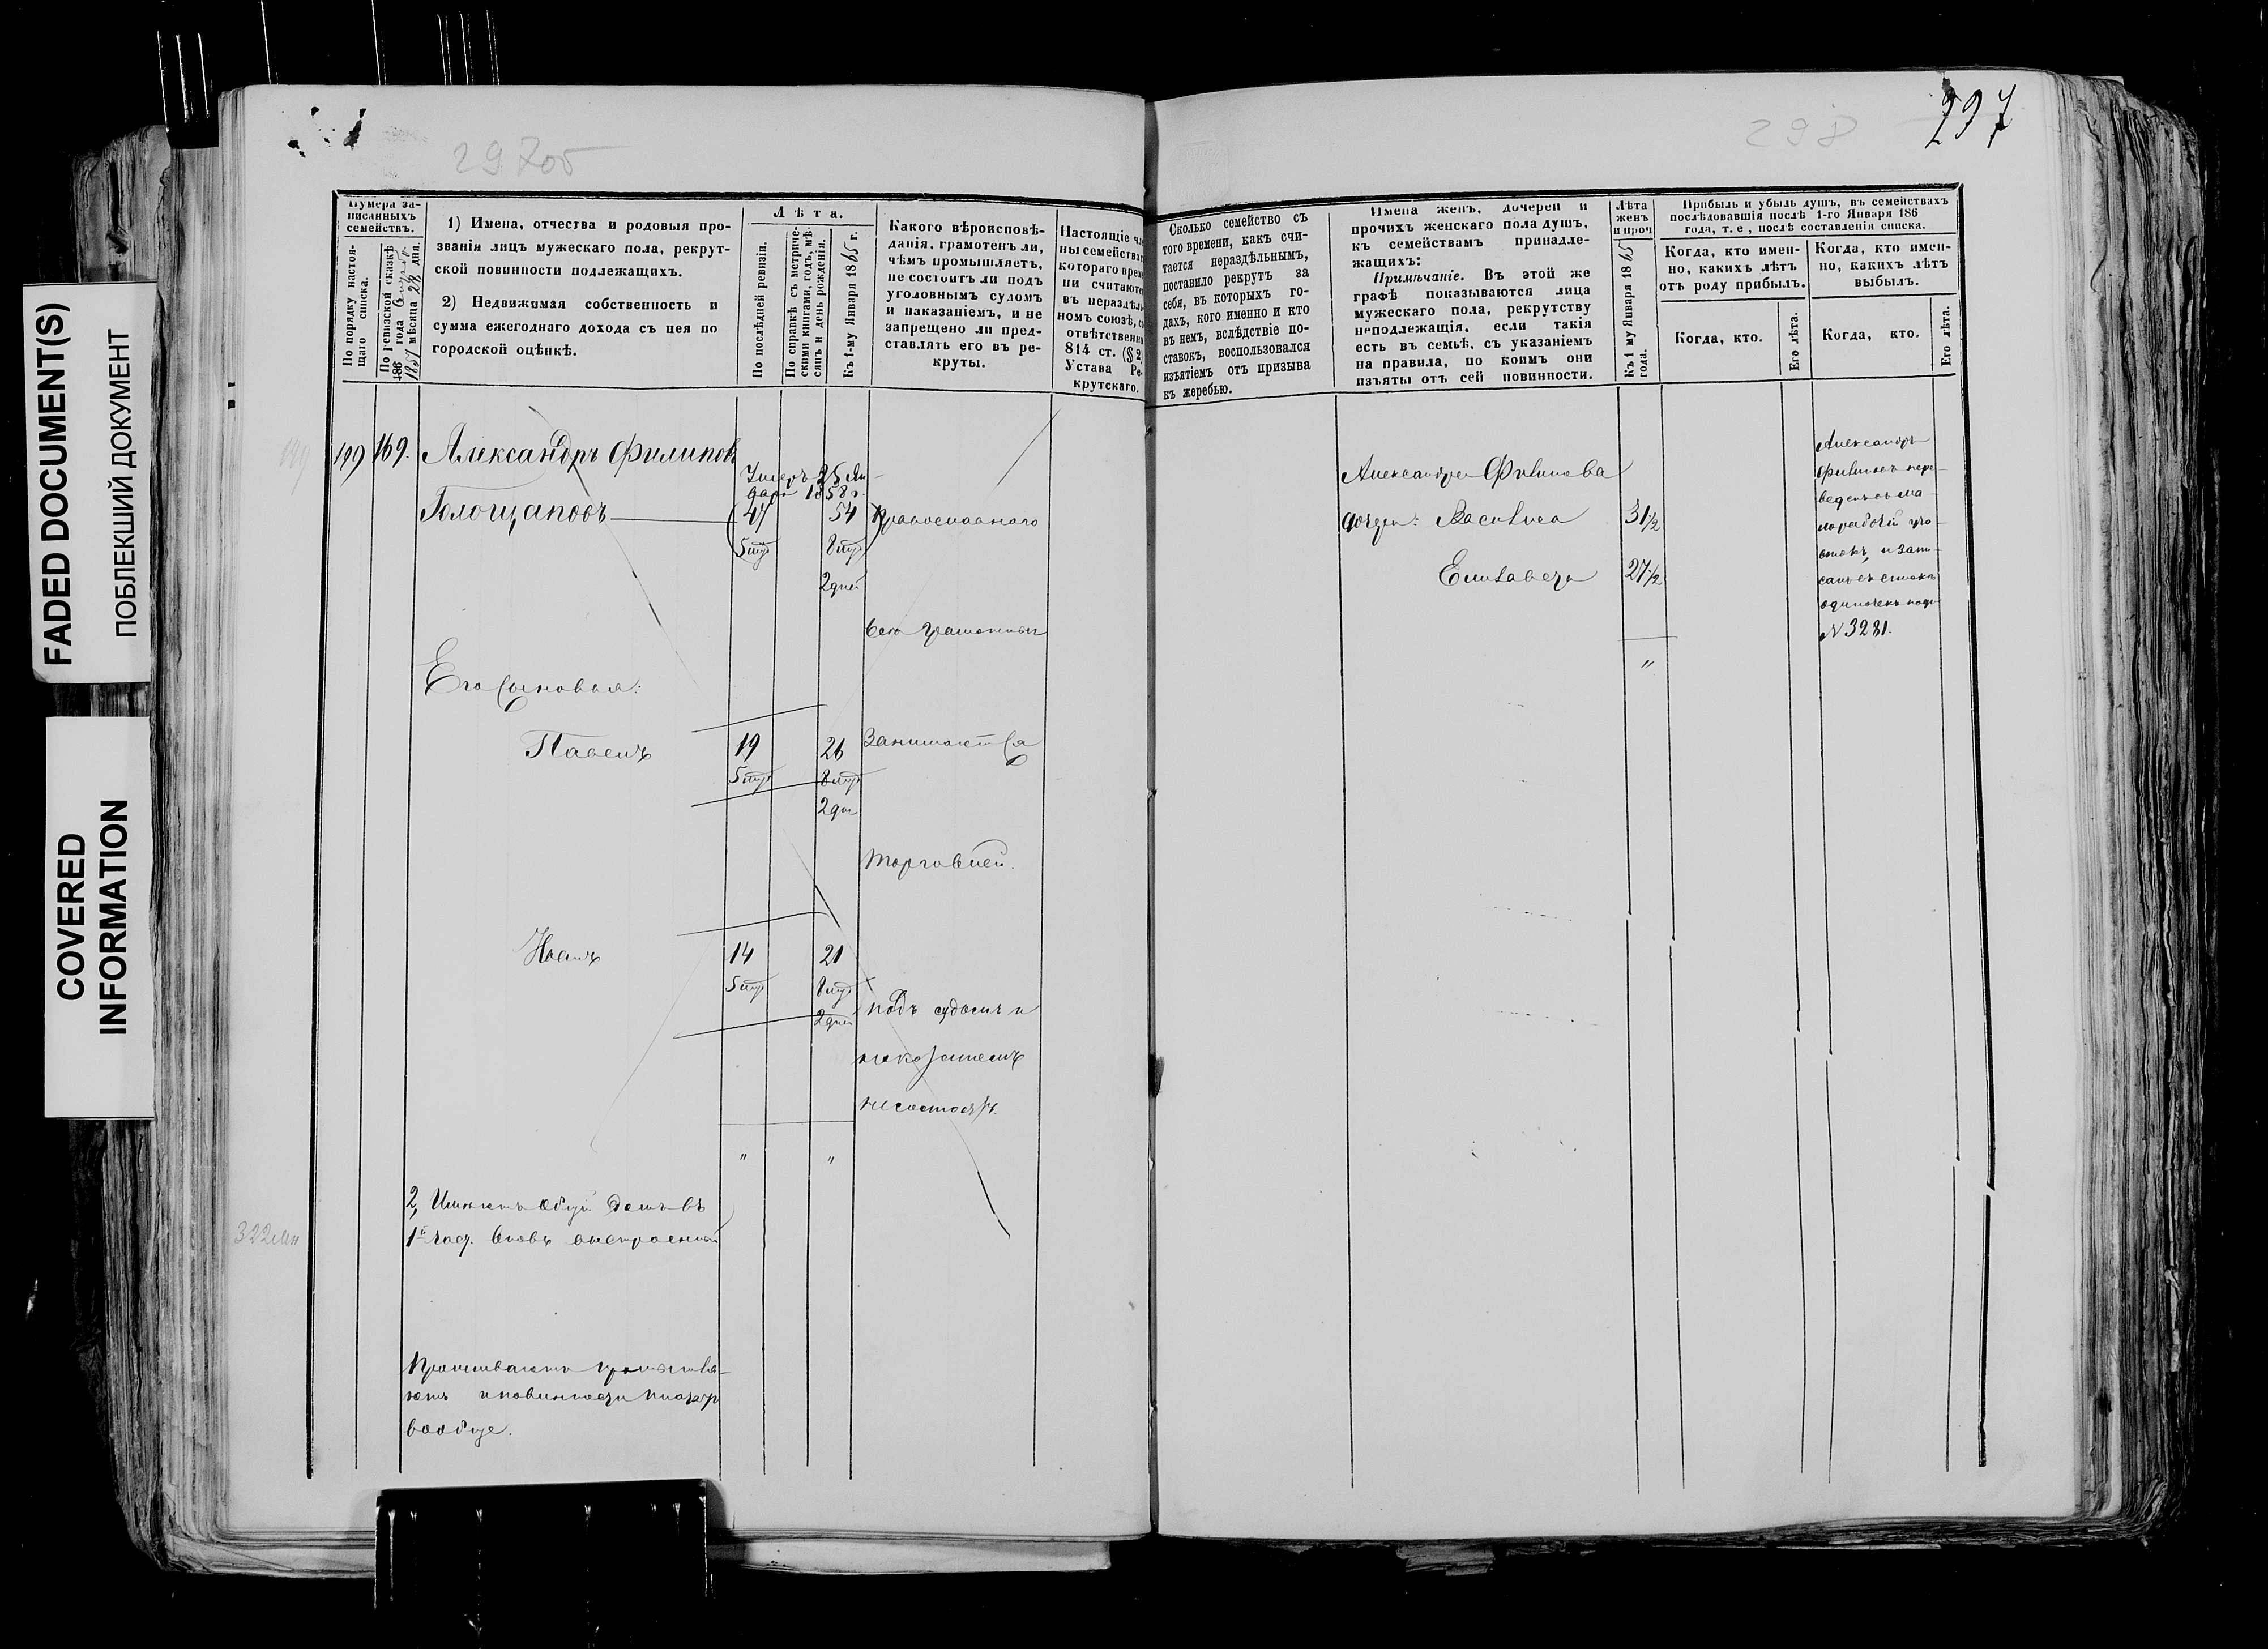 FADED DOCUMENT(S)
ПОБЛЕКШИЙ ДОКУМЕНТ
COVERED
INFORMATION
297об
Нумера за-
писанныхъ
семействъ.
По порядку настоя-
щаго списка.
По ревизской сказкѣ
186 года
1857 мѣсяца 28 дня.
1) Имена, отчества и родовыя про-
званія лицъ мужескаго пола, рекрут-
ской повинности подлежащихъ.
2) Недвижимая собственность и
сумма ежегоднаго дохода съ нея по
городской оцѣнкѣ.
Лѣта.
По послѣдней ревизіи.
По справкѣ съ метриче-
скими книгами, годъ, мѣ-
сяцъ и день рожденія.
Къ 1-му Января 1865 г.
Какого вѣроисповѣ-
данія, грамотенъ ли,
чѣмъ промышляетъ,
не состоитъ ли подъ
уголовнымъ судомъ
и наказаніемъ, и не
запрещено ли пред-
ставлять его въ ре-
круты.
Настоящіе чле
ны семейства
котораго врем
ни считаютс
въ нераздѣль
номъ союзѣ, со
отвѣтственно
814 ст. (§ 2)
Устава Ре-
крутскаго.
199 169. Александръ Филиповъ
Умеръ 25 Ян-
варя 1858 г.
Голощаповъ 47 54 Православнаго
5 мѣс 8 мѣс
2 дней
Его Сыновья:
Павелъ 19 26 Занимаются
5 мѣс 8 мѣс
2 дн
торговлей.
14 21
5 мѣс 8 мѣс
2 дней
подъ судомъ и
наказаніемъ
несостоятъ.
2, Имѣютъ общій домъ въ
1й част. вновь выстроенный
322
и повинности платятъ
вообще.
298
297
Сколько семейство съ
того времени, какъ счи-
тается нераздѣльнымъ,
поставило рекрутъ за
себя, въ которыхъ го-
дахъ, кого именно и кто
въ немъ, вслѣдствіе по-
ставокъ, воспользовался
изъятіемъ отъ призыва
къ жеребью.
Имена женъ, дочерей и
прочихъ женскаго пола душъ,
къ семействамъ принадле-
жащихъ:
Примѣчаніе. Въ этой же
графѣ показываются лица
мужескаго пола, рекрутству
неподлежащія, если такія
есть въ семьѣ, съ указаніемъ
на правила, по коимъ они
изъяты отъ сей повинности.
Лѣта
женъ
и проч
Къ 1 му Января 1865
года.
Прибыль и убыль душъ, въ семействахъ
послѣдовавшія послѣ 1-го Января 186
года, т. е, послѣ составленія списка.
Когда, кто имен-
но, какихъ лѣтъ
отъ роду прибылъ.
Когда, кто.
Его лѣта.
Когда, кто имен-
но, какихъ лѣтъ
выбылъ.
Когда, кто.
Его лѣта.
Александра Филипова
дочери: Василиса 31½
Елизавета 27½
Александръ
Филиповъ пере-
веденъ въ ма-
лорабочій уча-
стокъ, и запи-
санъ въ списокъ
одиночекъ подъ
N 3281.